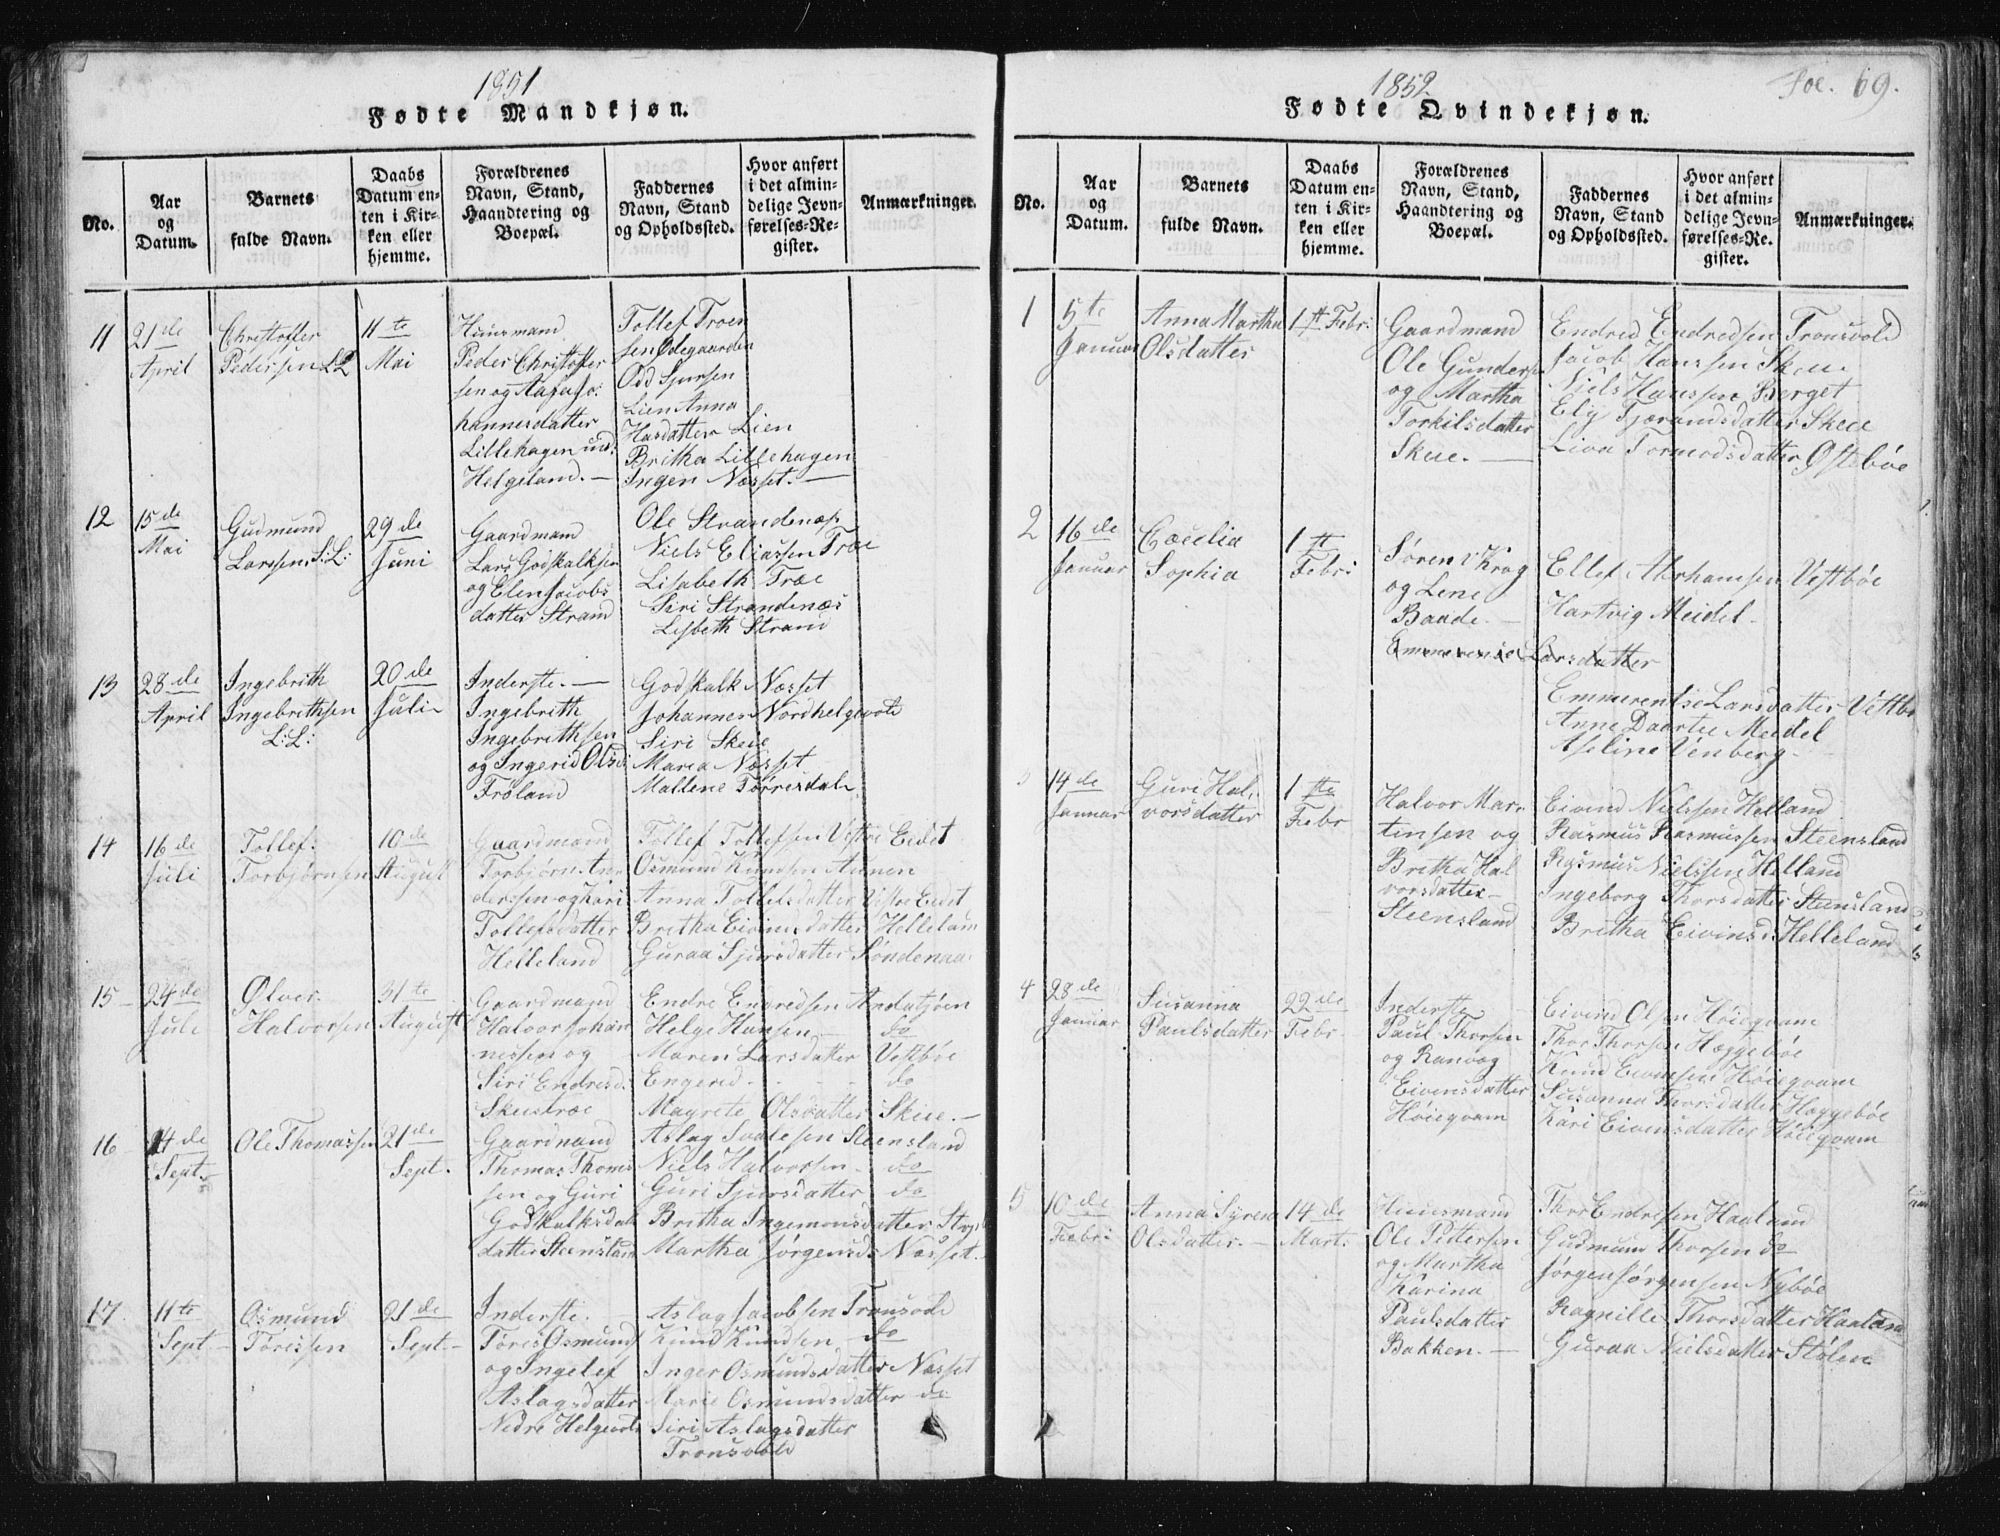 1851
Fødte Mandkjøn.
No.
Aar
og
Datum.
Barnets
fulde Navn.
Daabs
Datum en-
ten i Kir-
ken eller
hjemme.
Forældrenes
Navn, Stand,
Haandtering og
Boepæl.
Faddernes
Navn, Stand
og Opholdssted.
Hvor anført
i det almin-
delige Jevn-
førelses-Re-
gister.
Anmærkninger.
11
21de
April
Christoffer
Pedersen
11te
Mai
Huusmand
Peder Christoffer
sen og Aasa Jo:
hannesdatter
Lillehagen und:
Helgeland. —
Tollef Troen
sen Ødegaarden
Odd Sjursen
Lien Anna
Hasdatter Lien
Britha Lillehagen
Ingen Næsset. —
12
15de
Mai
Gudmund
Larssen. S:L:
29de
Juni
Gaardmand
Lars Godskalksen
og Elen Jacobs
datter Strand
Ole Strandenæs
Niels Eliassen Træe
Lisabeth Træe
Siri Strandenæs
Lisbeth Strand
13
28de
April
Ingebrith
Ingebrithsen
L:L:
20de
Juli
Inderste. —
Ingebrith
Ingebrithsen
og Ingerid Olsd:
Frøland
Godskalk Næsset
Johannes Nordhelgevold
Siri Skeie
Maria Næsset
Mallene Tørresdal
14
16de
Juli
Tollef
Torbjørnsen
10de
August
Gaardmand
Torbjørn An
derssen og Kari
Tollefsdatter
Helleland
Tollef Tollefsen Vestre Eidet
Osmund Knudsen Aunen
Anna Tollefsdatter Vestre Eidet
Britha Eivindsdatter Helleland
Guraa Sjursdatter Søndenaa
15
24de
Juli
Ølver
Halvorsen
31te
August
Gaardmand
Halvor Johan
nessen og
Siri Endresd.
Skeistræe
Endre Endredsen
Helge Hansen — do
Maren Larsdatter Vestbøe
Engerid - - - do
Magrete Olsdatter Skeie. —
16
14de
Sept.
Ole Thomassen
21de
Sept.
Gaardmand
Thomas Thomes
sen og Guri
Godskalksdat
datter Steensland
Aslag Svalesen Steensland
Niels Halvorsen - do
Guri Sjursdatter do
Britha Ingemonsdatter
Martha Jørgensd: Næsset -
17
11te
Sept
Osmund
Tørissen
21de
Sept. —
Inderste
Tøres Osmunds
og Ingelef
Aslagsdatter
Nedre Helgevold
Aslag Jacobsen Tronsvold
Knud Knudsen do
Inger Osmundsdatter Næsset
Marie Osmundsdatter do
Siri Aslagsdatter
Tronsvold
1852.
69.
Fødte Qvindekjøn.
No.
Aar
og
Datum.
Barnets
fulde Navn.
Daabs
Datum en-
ten i Kir-
ken eller
hjemme.
Forældrenes
Navn, Stand,
Haandtering og
Boepæl.
Faddernes
Navn, Stand
og Opholdssted.
Hvor anført
i det almin-
delige Jevn-
førelses-Re-
gister.
Anmærkninger.
1
5te
Januar
Anna Martha
Olsdatter
1ste Febr:
Gaardmand
Ole Gundersen
og Martha
Torkilsdatter
Skeie. —
Endred Endredsen Tronsvold
Jacob Hanssen Skeie
Niels Hanssen Berget
Elij Tjerandsdatter Skeie
Liva Tormodsdatter Østebøe
2
16de
Januar
Cæcilia
Sophia
1ste
Febr:
Søren Krag
og Lene
Baade. —
Emmerense Larsdatter
Ellef Abrhamsen Vestbøe
Hartvig Meidel -
Emmerentse Larsdatter Vestbø
Anne Daartie Meidel
Aseline Venberg -
14de
Januar
Guri Hal:
vorsdatter
1ste
Febr
Halvor Mar-
tinsen og
Britha Hal
vorsdatter
Steensland
Eivind Nielssen Helland
Rasmus Rasmussen Steensland
Rasmus Nielssen Helland
Ingeborg Thorsdatter Steensland
Britha Eivinsd: Helleland
4
28de
Januar
Susanna
Paulsdatter
22de
Febr.
Inderste
Paul Thorsen
og Ranvog
Eivensdatter
Høiegvam
Eivind Olsen Høiegvam
Thor Thorsen Hæggebøe
Knud Eivensen Høiegvam
Susanna Thorsdatter Hæggebøe
Kari Eivensdatter Høiegvam
5
10de
Febr:
Anna Syrena
Olsdatter. —
14de
Mart:
Huusmand
Ole Pettersen
og Martha
Karina
Paulsdatter
Bakken. —
Thor Endresen Haaland
Gudmund Thorsen do
Jørgen Jørgensen Nybøe
Ragnille Thorsdatter Haaland
Guraa Nielsdatter Stølen